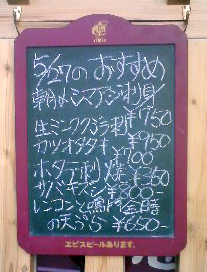 5/27のおすすめ
朝〆シマアジ刺身
¥1750
生ミンククジラ刺
¥950
カツオタタキ
¥700
ホタテ刺 焼 ¥350
サバキズシ ¥800-
レンコンと鳴門金時
の天ぷら ¥650-
ヱビスビールあります。